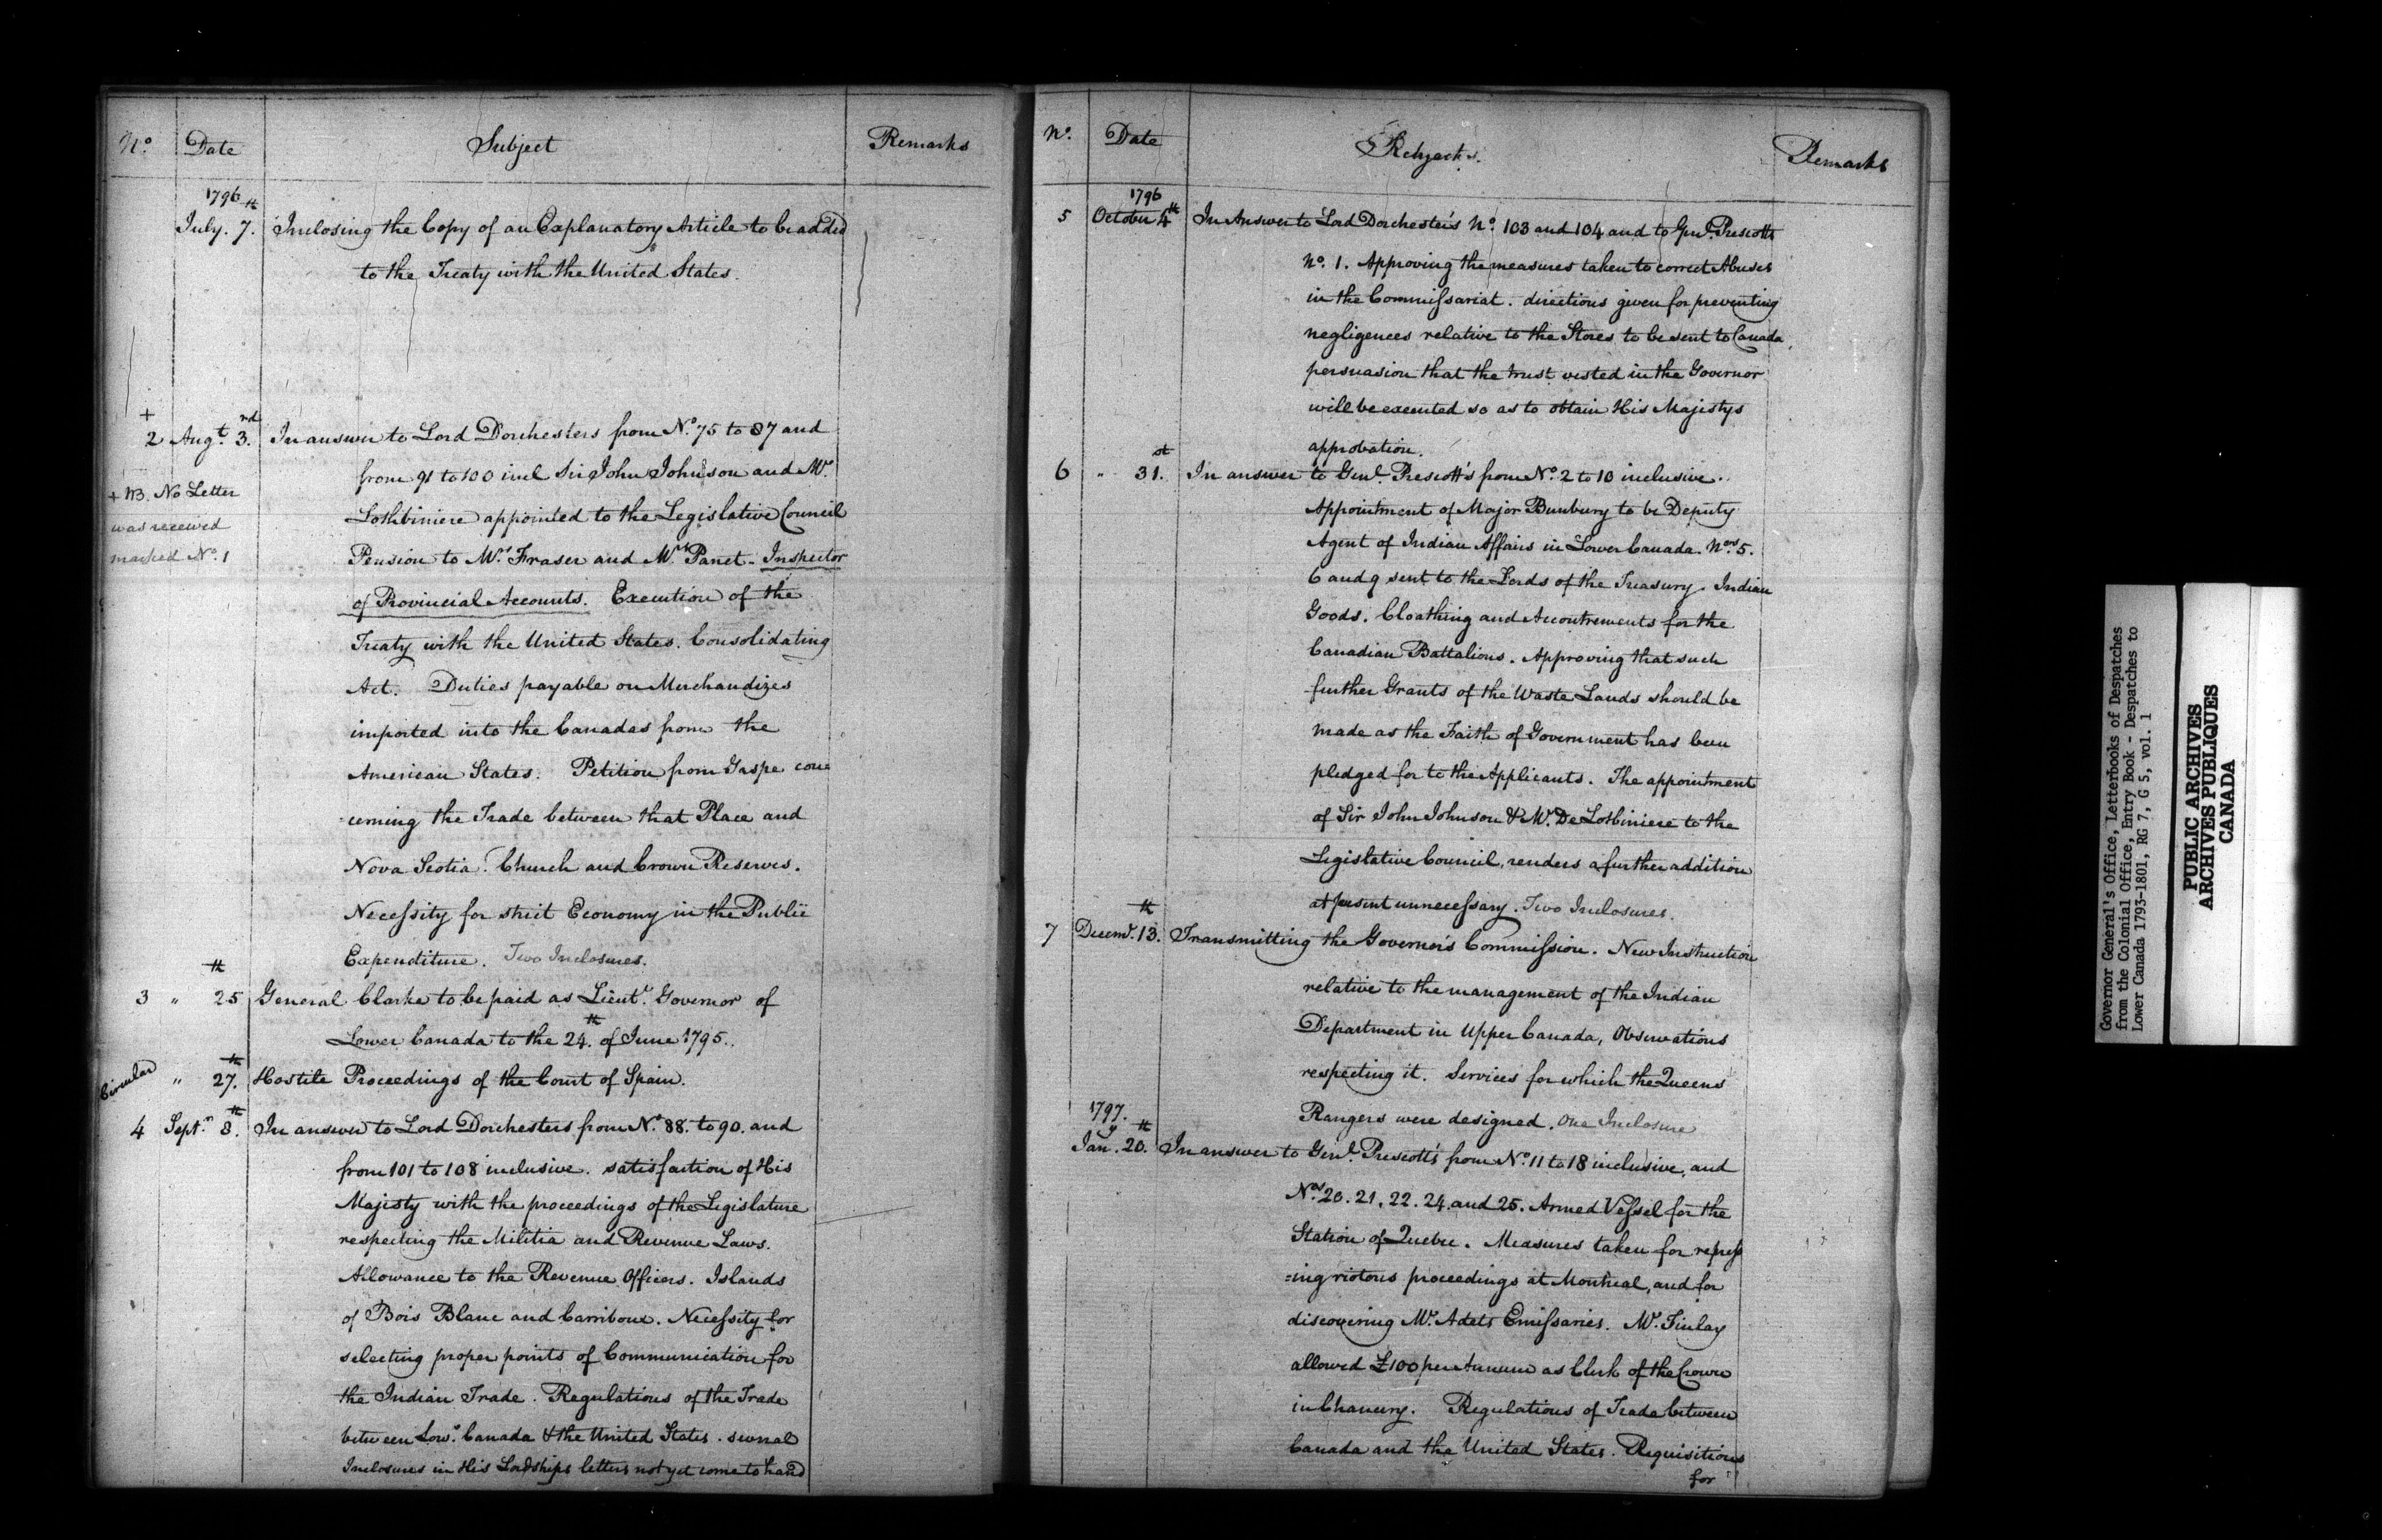 No. Date Subject Remarks
1796
July. 7.th Inclosing the Copy of an Explanatory Article to be added
to the Treaty with the United States.
+
2 Augt. 3.rd In answer to Lord Dorchesters from No. 75 to 87 and
from 91 to 100 incl Sir John Johnson and Mr.
+ NB. No Letter
was received
marked No. 1
Lothbiniere appointed to the Legislative Council
Pension to Mrs. Fraser and Mr. Panet - Inspector
of Provincial Accounts. Execution of the
Treaty with the United States. Consolidating
Act. Duties payable on Merchandizes
imported into the Canadas from the
American States. Petition from Gaspe con
-cerning the Trade between that Place and
Nova Scotia. Church and Crown Reserves.
Necessity for strict Economy in the Public
Expenditure. Two Inclosures.
3 " 25th General Clarke to be paid as Lieut. Governor of
Lower Canada to the 24.th of June 1795.
Circular " 27.th Hostile Proceedings of the Court of Spain.
4 Septr. 8.th In answer to Lord Dorchesters from No. 88. to 90. and
from 101 to 108 inclusive. satisfaction of His
Majesty with the proceedings of the Legislature
respecting the Militia and Revenue Laws.
Allowance to the Revenue Officers. Islands
of Bois Blanc and Carriboux. Necessity for
selecting proper points of Communication for
the Indian Trade. Regulations of the Trade
between Low. Canada & the United States. several
Inclosures in His Lordships letters not yet come to hand
No. Date Remarks
1796
5 October 4th In Answer to Lord Dorchester's No. 103 and 104 and to Genl. Prescotts
No. 1. Approving the measures taken to correct Abuses
in the Commissariat. directions given for preventing
negligences relative to the Stores to be sent to Canada,
persuasion that the trust vested in the Governor
will be executed so as to obtain His Majestys
approbation.
6 " 31.st In answer to Genl. Prescott's from No. 2 to 10 inclusive.
Appointment of Major Bunbury to be Deputy
Agent of Indian Affairs in Lower Canada. Nos. 5.
6 and 9 sent to the Lords of the Treasury. Indian
Goods. Cloathing and Accoutrements for the
Canadian Battalions. Approving that such
further Grants of the Waste Lands should be
made as the Faith of Government has been
pledged for to the Applicants. The appointment
of Sir John Johnson & Mr. De Lotbiniere to the
Legislative Council, renders a further addition
at present unnecessary. Two Inclosures.
7 Decemr. 13.th Transmitting the Governor's Commission. New Instruction
relative to the management of the Indian
Department in Upper Canada, Observations
respecting it. Services for which the Queens
Rangers were designed. One Inclosure
1797.
Jany. 20.th In answer to Genl. Prescott's from No. 11 to 18 inclusive, and
Nos. 20. 21. 22. 24. and 25. Armed Vessel for the
Station of Quebec. Measures taken for repress
=ing riotous proceedings at Montreal, and for
discovering Mr. Adets Emissaries. Mr. Finlay
allowed £100 per Annum as Clerk of the Crown
in Chancery. Regulations of Trade between
Canada and the United States. Requisitions
for
Governor General's Office, Letterbooks of Despatches
from the Colonial Office, Entry Book - Despatches to
Lower Canada 1793-1801, RG 7, G 5, vol. 1
PUBLIC ARCHIVES
ARCHIVES PUBLIQUES
CANADA